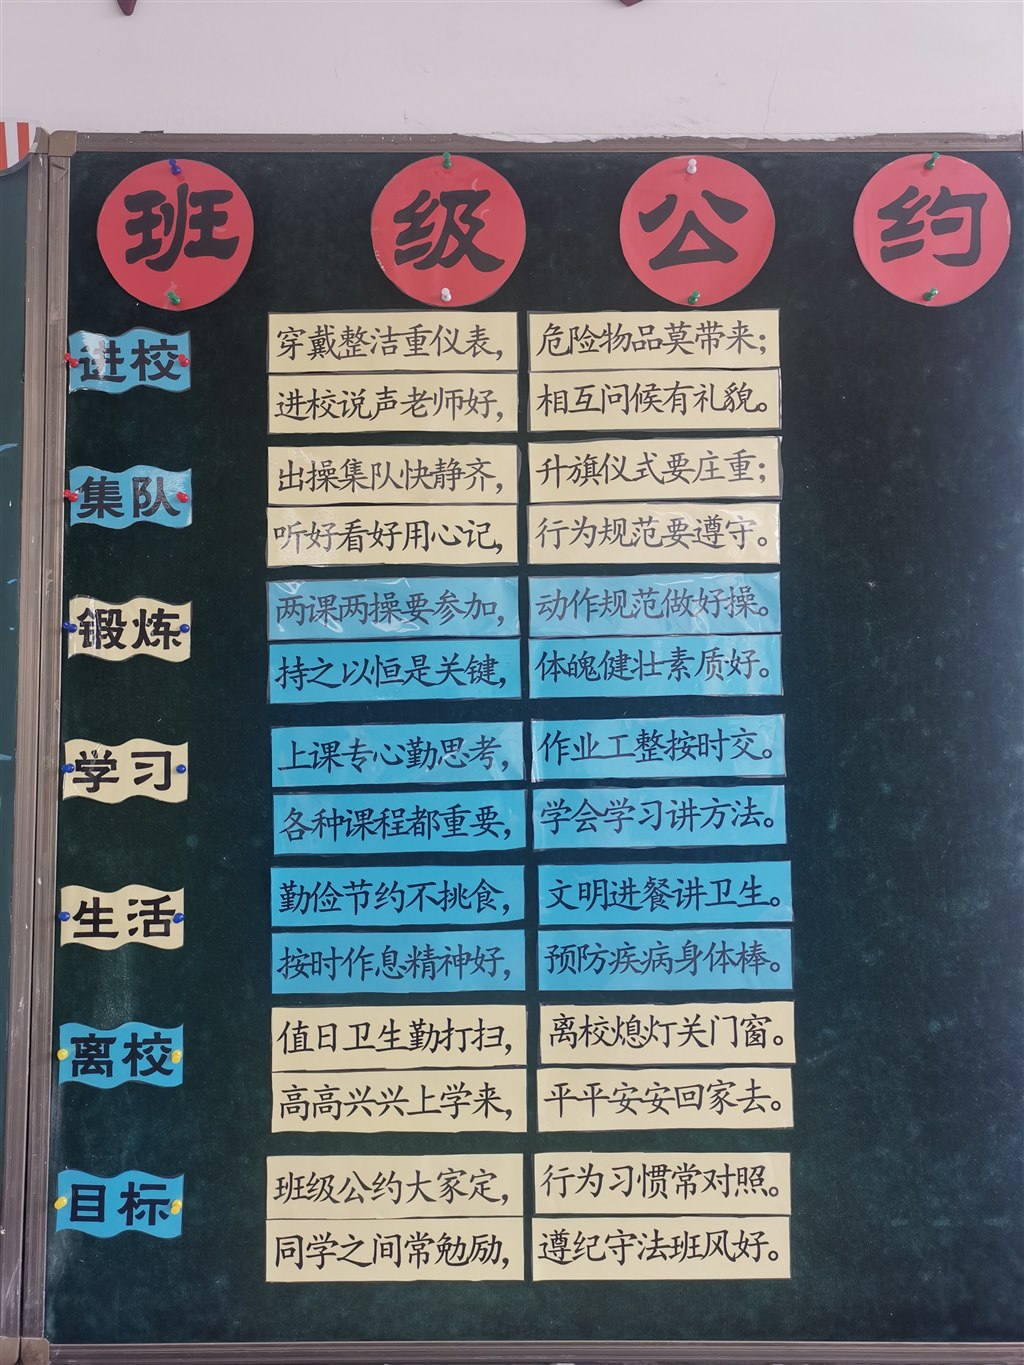 班级公约
进校
穿戴整洁重仪表，危险物品莫带来；
进校说声老师好，相互问候有礼貌。
集队
出操集队快静齐，升旗仪式要庄重；
听好看好用心记，行为规范要遵守。
锻炼
两课两操要参加，动作规范做好操。
持之以恒是关键，体魄健壮素质好。
学习
上课专心勤思考，作业工整按时交。
各种课程都重要，学会学习讲方法。
生活
勤俭节约不挑食，文明进餐讲卫生。
按时作息精神好，预防疾病身体棒。
离校
值日卫生勤打扫，离校熄灯关门窗。
高高兴兴上学来，平平安安回家去。
目标
班级公约大家定，行为习惯常对照。
同学之间常勉励，遵纪守法班风好。